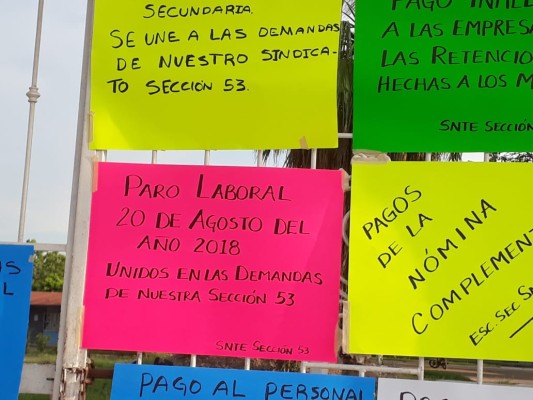 SECUNDARIA.
SE UNE A LAS DEMANDAS
DE NUESTRO SINDICA-
TO SECCIÓN 53.
A LAS EMPRESA
LAS RETENCIO
HECHAS A LOS M
SNTE SECCIÓN
PARO LABORAL
20 DE AGOSTO DEL
AÑO 2018
UNIDOS EN LAS DEMANDAS
DE NUESTRA SECCIÓN 53
SNTE SECCIÓN 53
PAGOS
DE LA
NÓMINA
COMPLEMENT
ESC. SEC
PAGO AL PERSONAL